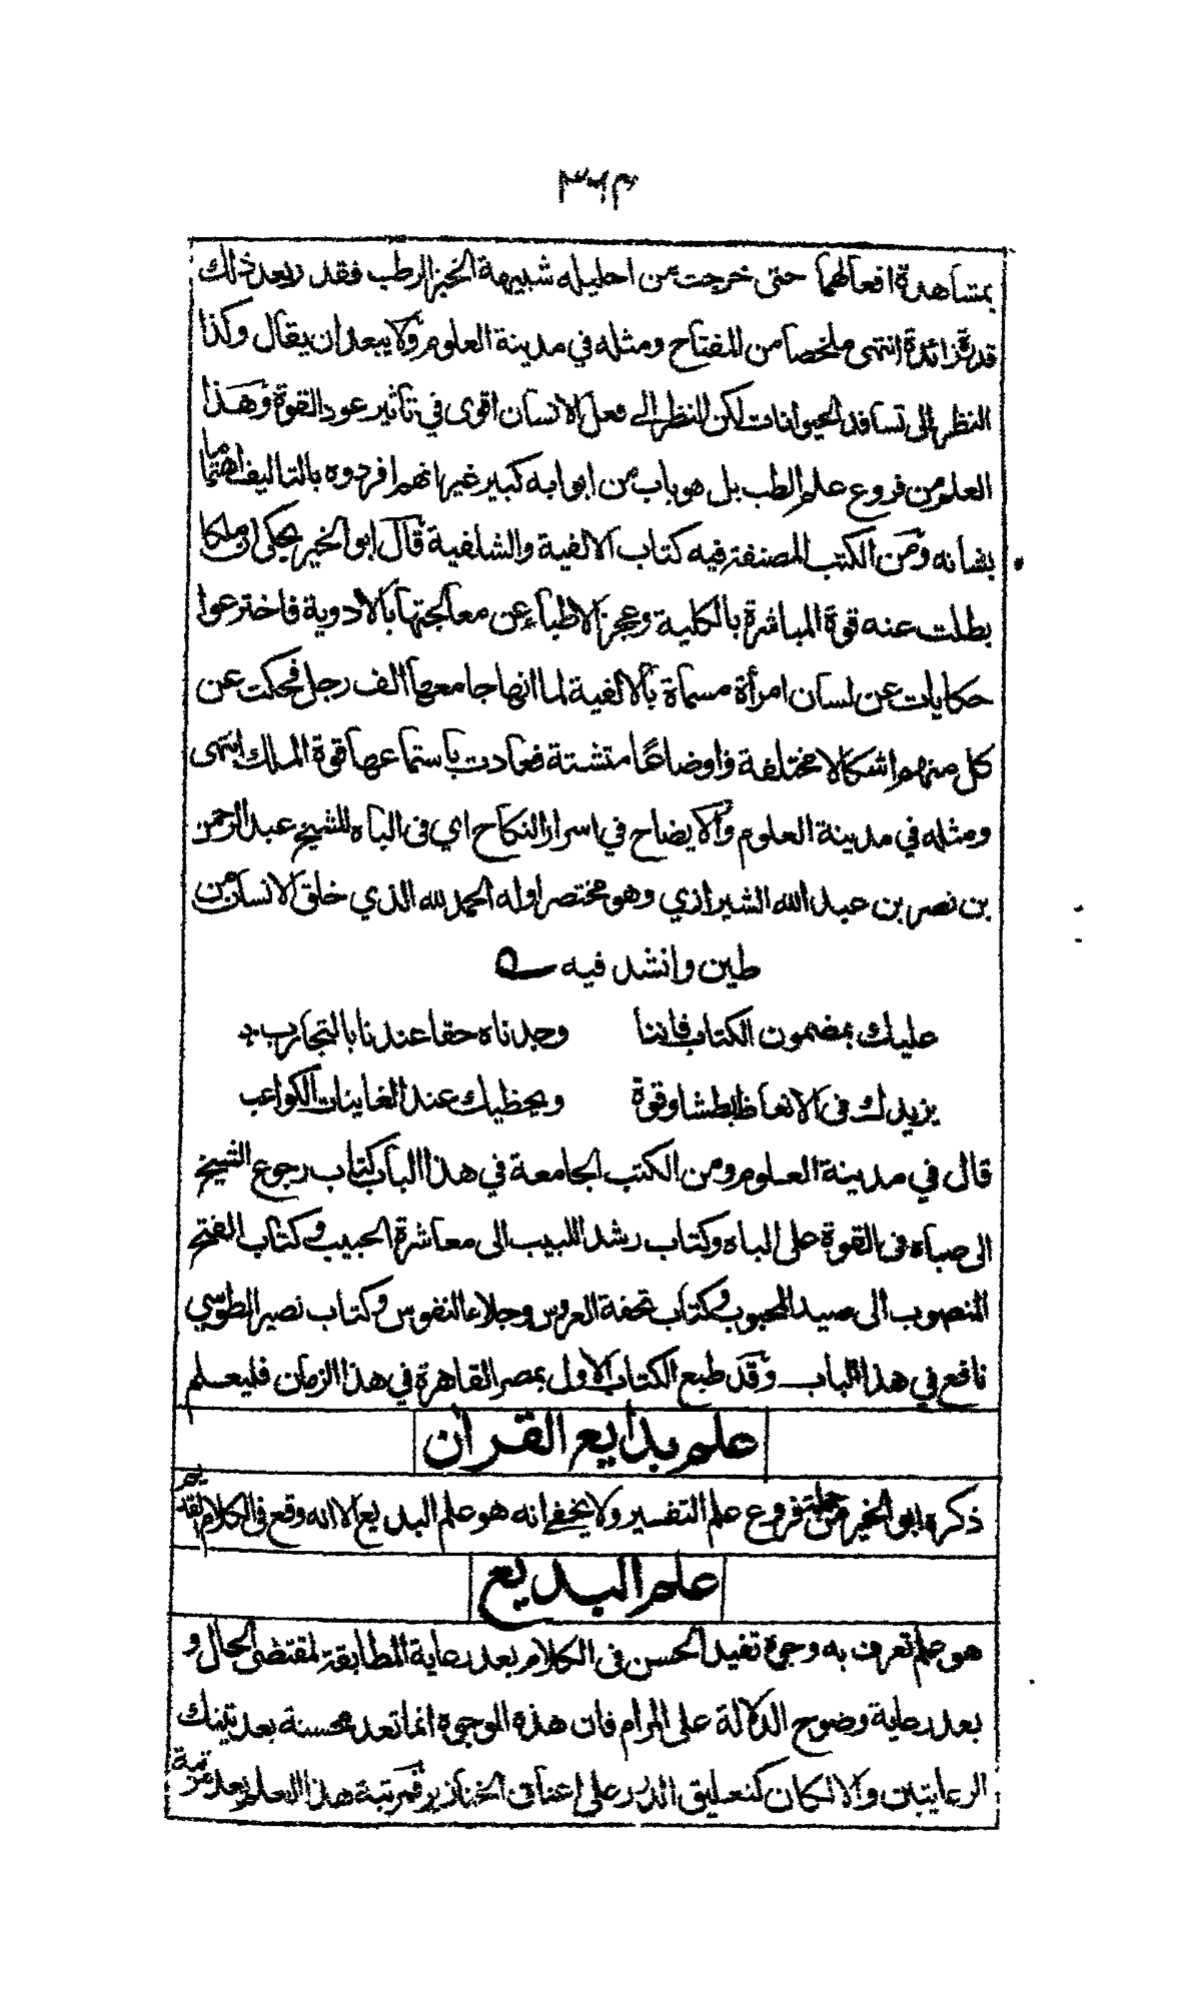 ٣٦٣
بمشاهدة افعالهما حتى خرجت من احليله شبيهة الخبز الرطب فقد ربعد ذلك
قدرة زائدة انتهى ملخصا من المفتاح ومثله في مدينة العلوم ولا يبعد ان يقال وكذا
النظر الى تسافد الحيوانات لكن النظر الى فعل الانسان اقوى في تاثير عود القوة وهذا
العلم من فروع علم الطب بل هو باب من ابوابه كبير غير انهم افردوه بالتاليف اهتماما
بشانه ومن الكتب المصنفة فيه كتاب الالفية والشلفية قال ابو الخير يحكى ان ملكا
بطلت عنه قوة المباشرة بالكلية وعجز الاطباء عن معالجتها بالادوية فاخترعوا
حكايات عن لسان امرأة مسماة بالالفية لما انها جامعها الف رجل فحكت عن
كل منهم اشكالا مختلفة واوضاعا متشتة فعادت باستماعها قوة الملك انتهى
ومثله في مدينة العلوم والايضاح في اسرار النكاح اي في الباه للشيخ عبد الرحمن
بن نصر بن عبد الله الشيرازي وهو مختصر اوله الحمد لله الذي خلق الانسان من
طين وانشد فيه
عليك بمضمون الكتاب فاننا وجدناه حقا عندنا بالتجارب
يزيدك فى الانعاظ بطشا وقوة ويحظيك عند الغاينات الكواعب
قال في مدينة العلوم ومن الكتب الجامعة في هذا الباب كتاب رجوع الشيخ
الى صباه فى القوة على الباه وكتاب رشد اللبيب الى معاشرة الحبيب وكتاب الفتح
المنصوب الى صيد المحبوب وكتاب تحفة العروس وجلاء النفوس وكتاب نصير الطوسي
نافع في هذا الباب وقد طبع الكتاب الاول بمصر القاهرة في هذا الزمان فليعلم
علم بدايع القران
ذكره ابو الخير من جملة فروع علم التفسير ولا يخفى انه هو علم البديع الا انه وقع فى الكلام القديم
علم البديع
هو علم تعرف به وجوه تفيد الحسن فى الكلام بعد رعاية المطابقة لمقتضى الحال و
بعد رعاية وضوح الدلالة على المرام فان هذه الوجوه انما تعد محسنة بعد تينك
الرعايتين والا لكان كتعليق الدرر على اعناق الخنازير فمرتبة هذا العلم بعد مرتبة